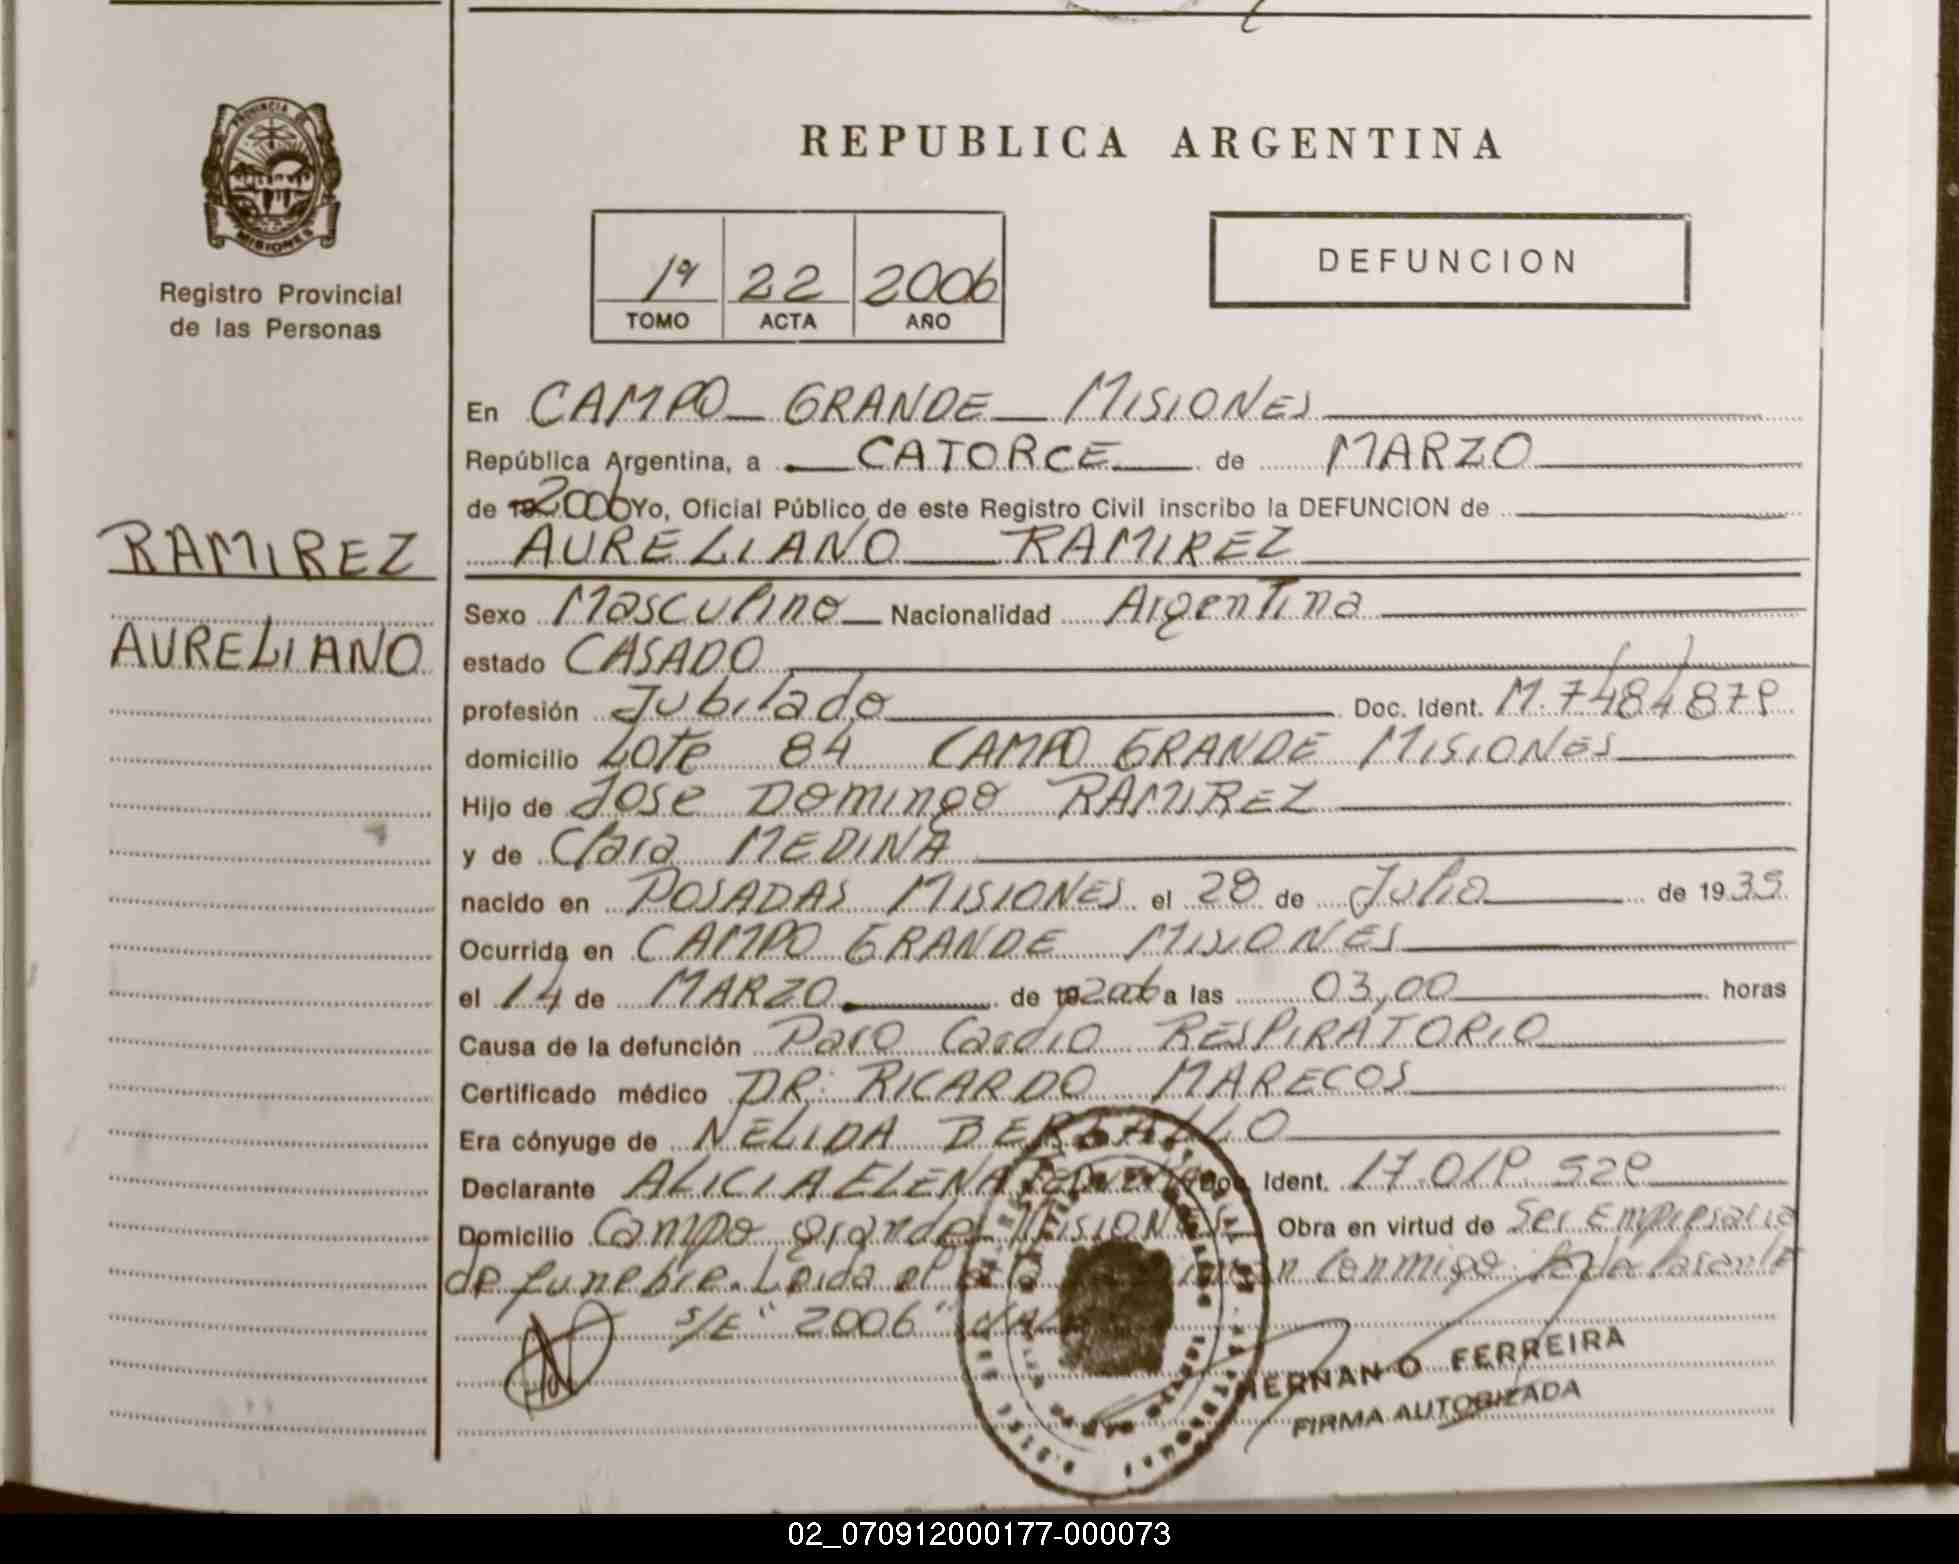 PROVINCIA DE
MISIONES
Registro Provincial
de las Personas
REPUBLICA ARGENTINA
1º 22 2006
TOMO ACTA AÑO
DEFUNCION
En CAMPO GRANDE MISIONES
República Argentina, a CATORCE de MARZO
de 2006 Yo, Oficial Público de este Registro Civil inscribo la DEFUNCION de
AURELIANO RAMIREZ
RAMIREZ
AURELIANO
Sexo Masculino Nacionalidad Argentina
estado CASADO
profesión Jubilado Doc. Ident. M. 7484879
domicilio Lote 84 CAMPO GRANDE MISIONES
Hijo de Jose Domingo RAMIREZ
y de Clara MEDINA
nacido en POSADAS MISIONES el 28 de Julio de 1939
Ocurrida en CAMPO GRANDE MISIONES
el 14 de MARZO de 2006 a las 03,00 horas
Causa de la defunción Paro Cardio RESPIRATORIO
Certificado médico DR: RICARDO MARECOS
Era cónyuge de NELIDA
Declarante ALICIA ELENA Doc. Ident.
Domicilio Campo grande MISIONES Obra en virtud de Ser Empresaria
de funebre. Leida el acta conmigo
S/E "2006"
HERNAN O FERREIRA
FIRMA AUTORIZADA
02_070912000177-000073